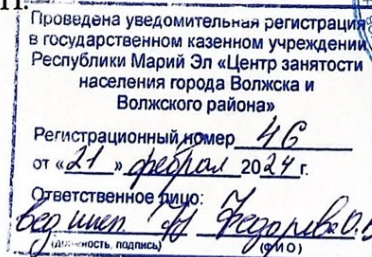 Проведена уведомительная регистрация
в государственном казенном учреждении
Республики Марий Эл «Центр занятости
населения города Волжска и
Волжского района»
Регистрационный номер 46
от «21» феврал 2024 г.
Ответственное лицо:
вед инсп Федорева О.В
(должность, подпись) (ФИО)